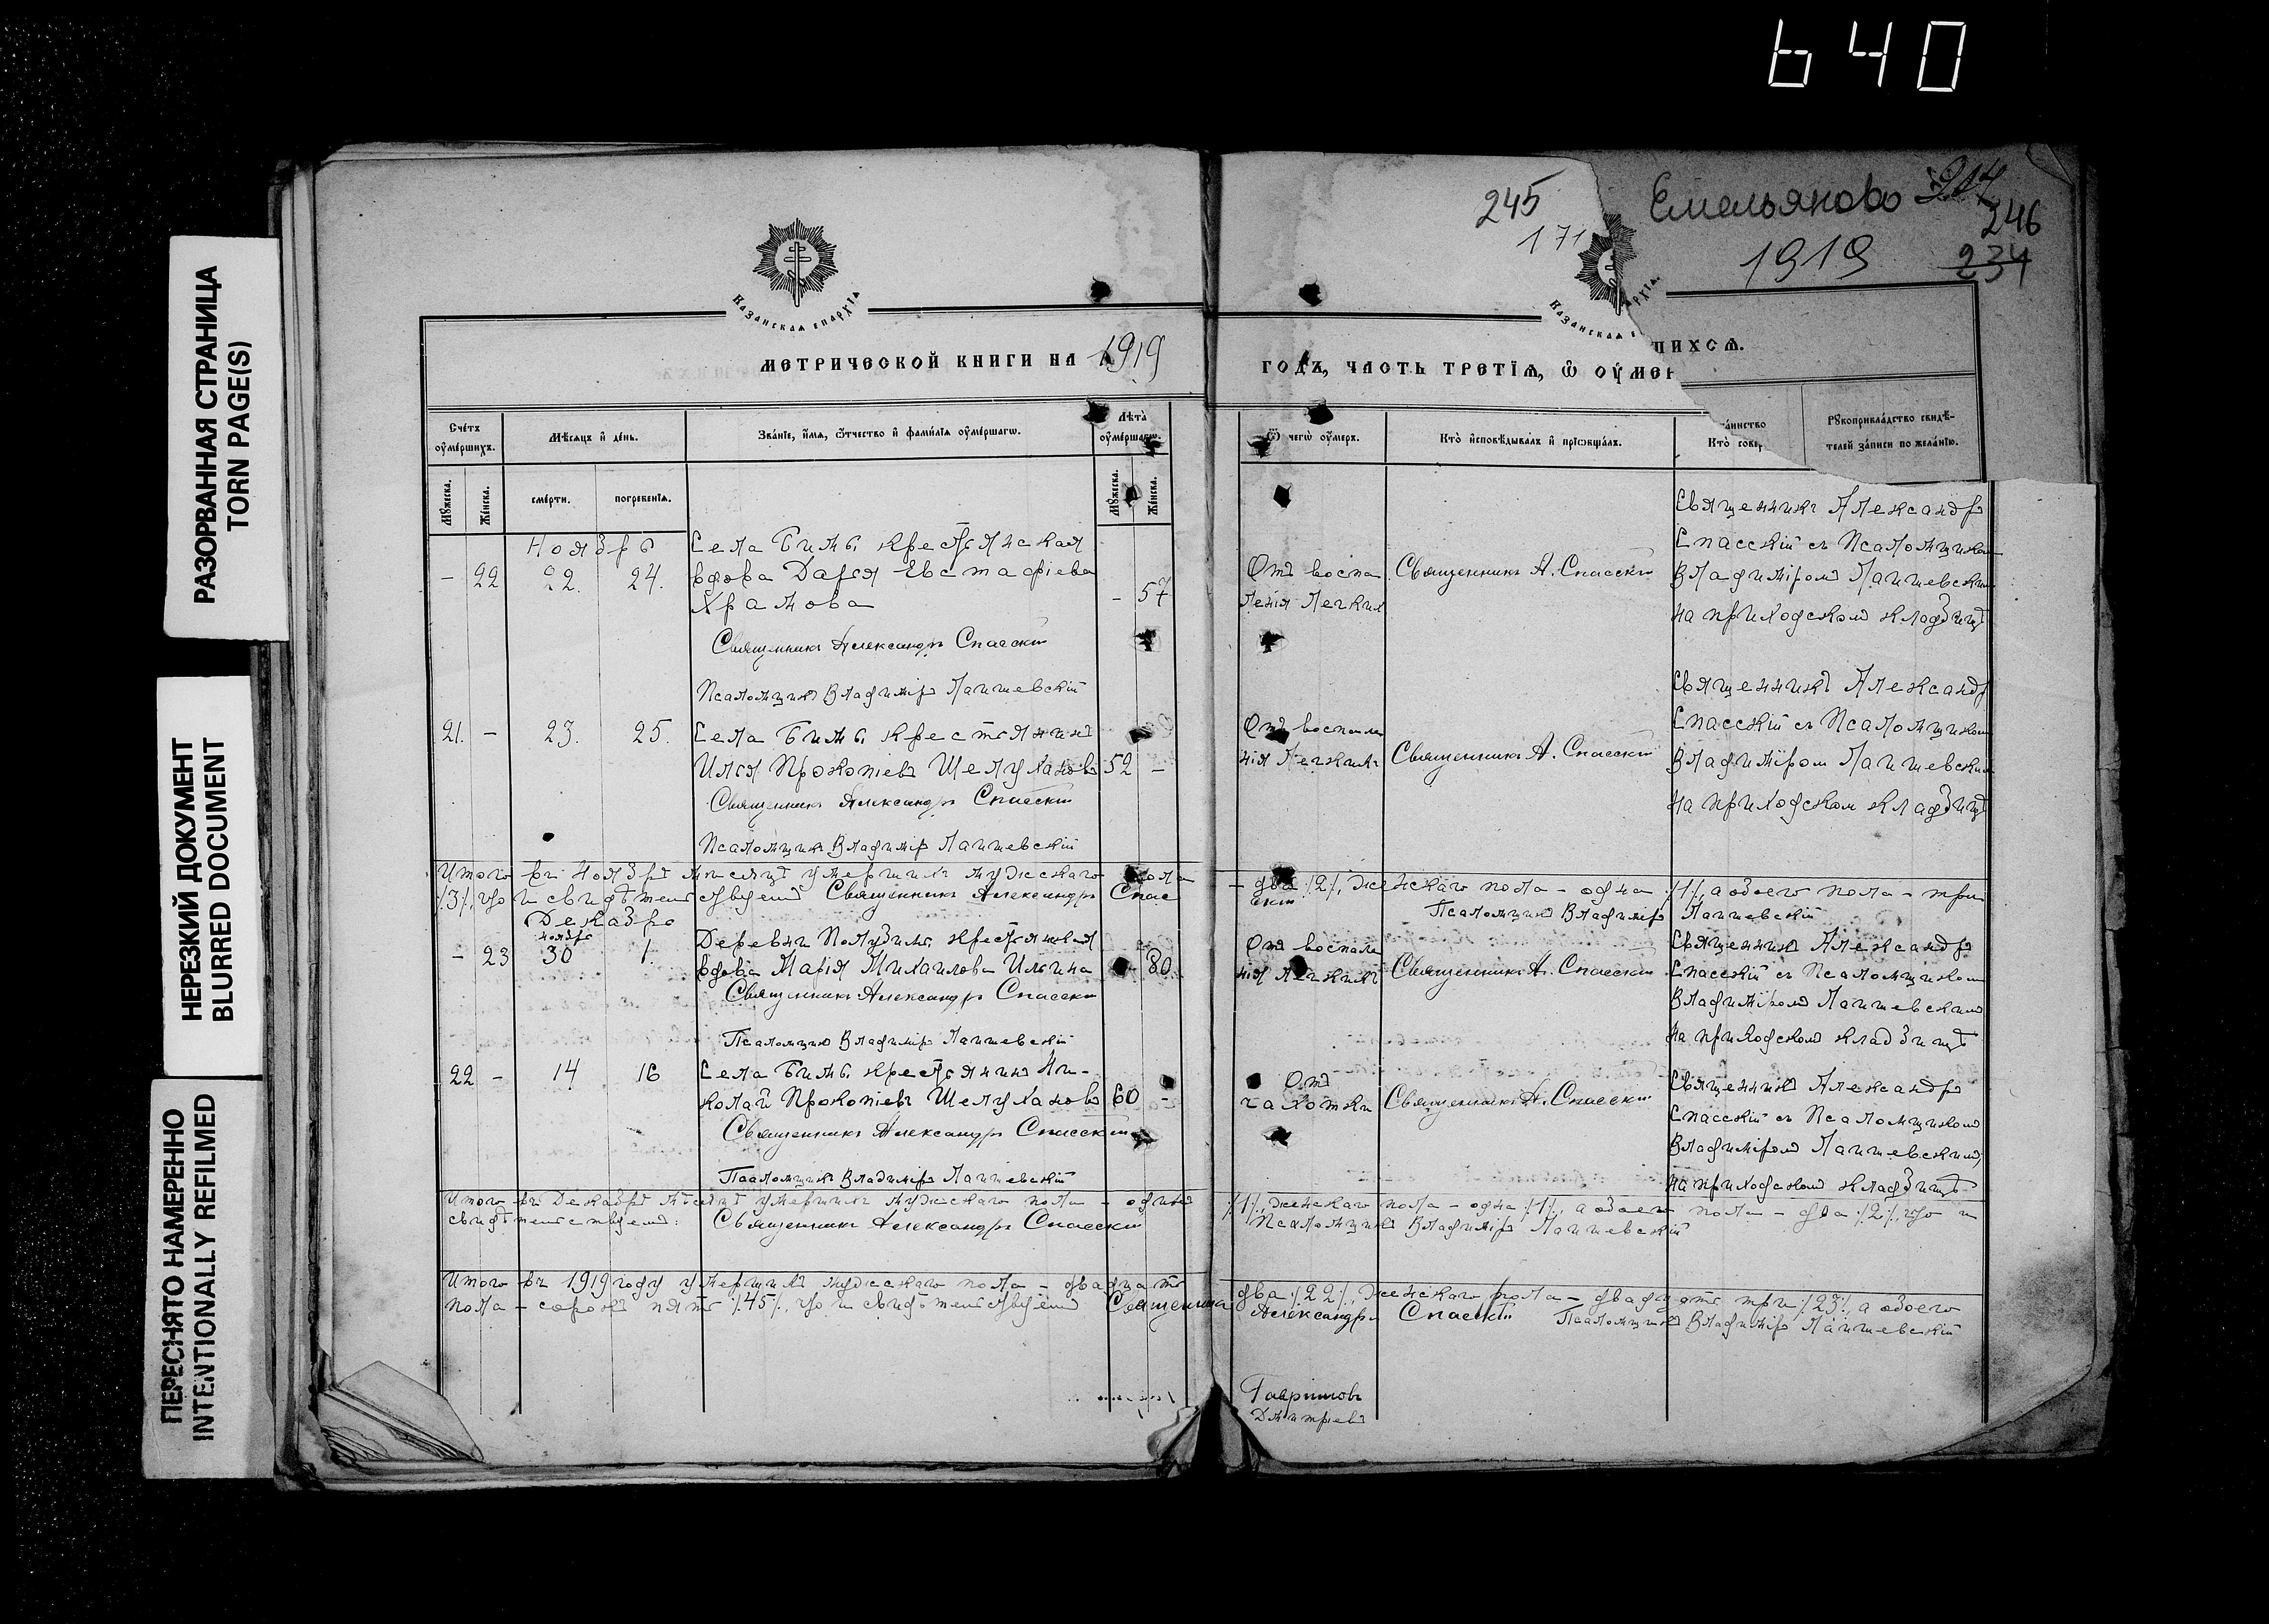 640
РАЗОРВАННАЯ СТРАНИЦА
TORN PAGE(S)
НЕРЕЗКИЙ ДОКУМЕНТ
BLURRED DOCUMENT
ПЕРЕСНЯТО НАМЕРЕННО
INTENTIONALLY REFILMED
245
171
Емельяново
246
1919
234
Казанская епархїѧ
Казанская
архїѧ.
метрической книги на 1919
годъ, часть третїѧ, ѡ оумер
шихсѧ.
Счетъ оумершихъ.
Мѣсѧцъ и день.
Званїе, имѧ, ѿчество и фамилїѧ оумершагѡ.
Лѣта оумершагѡ.
Ѿ чегѡ оумеръ.
Кто исповѣдывалъ и прїѡбщалъ.
Кто совер
Рꙋкоприкладство свидѣ-
телей записи по желанїю.
Мꙋжеска.
Женска.
смерти.
погребенїѧ.
Мꙋжеска.
Женска.
Ноябрь
Села Бимь крестьянская
- 22 22. 24. вдова Дарья Евстафіева - 57
Храмова
Священникъ Александръ Спасскій
Псаломщикъ Владиміръ Лаишевскій
Отъ воспа
ленія легких
Священникъ А. Спасскій
Священникъ Александръ
Спасскій съ Псаломщиком
Владиміромъ Лаишевским
на приходскомъ кладбищѣ
21. - 23. 25. Села Бимь крестьянинъ
Илья Прокопіевъ Шелухановъ 52 -
Священникъ Александръ Спасскій
Псаломщикъ Владиміръ Лаишевскій
Отъ воспале
нія легкихъ
Священникъ А. Спасскій
Священникъ Александръ
Спасскій съ Псаломщиком
Владиміром Лаишевским
на приходском кладбищѣ
Итого въ Ноябрѣ мѣсяцѣ умершихъ мужскаго пола
- два /2/, женскаго пола - одна /1/, а обоего пола - три
/3/, что и свидѣтельствуемъ Священникъ Александръ Спас
скій
Псаломщикъ Владиміръ Лаишевскій
Декабрь
ноябрь
Деревни Полузимь крестьянская
- 23 30 1. вдова Марія Михаилова Ильина - 80.
Священникъ Александръ Спасскій
Псаломщикъ Владиміръ Лаишевскій
Отъ воспале
нія легкихъ
Священникъ А. Спасскій
Священникъ Александръ
Спасскій съ Псаломщиком
Владиміромъ Лаишевскимъ
на приходскомъ кладбищѣ
22 - 14 16 Села Бимь крестьянинъ Ни-
колай Прокопіевъ Шелухановъ 60 -
Священникъ Александръ Спасскій
Псаломщикъ Владиміръ Лаишевскій
Отъ
чахотки
Священникъ А. Спасскій
Священникъ Александръ
Спасскій съ Псаломщикомъ
Владиміромъ Лаишевскимъ
на приходскомъ кладбищѣ
Итого въ Декабрѣ мѣсяцѣ умершихъ мужскаго пола - одинъ
/1/, женскаго пола - одна /1/, а обоего пола - два /2/, что и
свидѣтельствуемъ: Священникъ Александръ Спасскій
Псаломщикъ Владиміръ Лаишевскій
Итого въ 1919 году умершихъ мужскаго пола - двадцать
два /22/, женскаго пола - двадцать три /23/, а обоего
пола - сорокъ пять /45/, что и свидѣтельствуемъ Священникъ
Александръ Спасскій Псаломщикъ Владиміръ Лаишевскій
Гавриловъ
Дмитріевъ